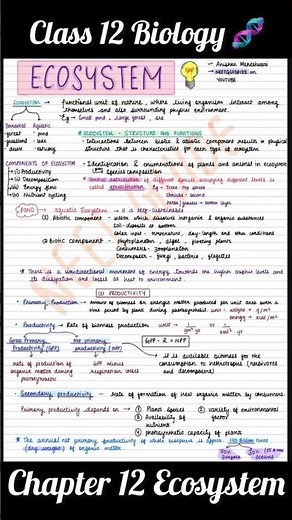 Class 12 Biology
- Anishka Maheshwari
NEETGUIDE22 on
YOUTUBE
ECOSYSTEM
Ecosystem → functional unit of nature, where living organism interact among
themselves and also surrounding physical environment.
Eg → Small pond, large forest, sea
Terrestrial Aquatic
-forest -pond
-grassland -lake
-desert -estuary
# ECOSYSTEM - STRUCTURE AND FUNCTIONS
- Interactions between biotic & abiotic component results in physical
structures that is characteristics for each type of ecosystem
COMPONENTS OF ECOSYSTEM
(i) Productivity
(ii) Decomposition
(iii) Energy flow
(iv) Nutrient cycling
- Identification & enumerations of plants and animal in ecosystem
Species composition
* Vertical distribution of different species occupying different levels is
called stratification. Eg - Trees - Top strata
Shrubs - second
Herbs/grasses - bottom layer
POND → Aquatic Ecosystem → It is self-sustainable
(1) Abiotic component - water which have inorganic & organic substances
Soil-deposits at bottom
Solar input - temperature, day-length and other conditions
(2) Biotic Component - phytoplankton, algae, floating plants
Consumers - zooplankton
Decomposer - fungi, bacteria, flagellates
* There is a unidirectional movement of energy towards the higher trophic levels and
its dissipation and loss as heat to environment.
(1) PRODUCTIVITY
- Primary Production - Amount of biomass or organic matter produced per unit area over a
time period by plant during photosynthesis. unit - weight → g/m²
energy → kcal/m²
- Productivity - Rate of biomass production
Gross Primary Productivity (GPP)
Net Primary productivity (NPP)
GPP - R = NPP
Rate of production of
organic matter during
photosynthesis
GPP minus
respiration losses
it is available biomass for the
consumption to heterotrophs (herbivores
and decomposers)
- Secondary productivity - Rate of formation of new organic matter by consumers.
Primary productivity depends on → (1) Plant species (2) variety of environmental factors
(3) Availability of nutrients
(4) photosynthetic capacity of plants
* The annual net primary productivity of whole biosphere is approx 170 billion tonnes
(dry weight) of organic matter.
Chapter 12 Ecosystem